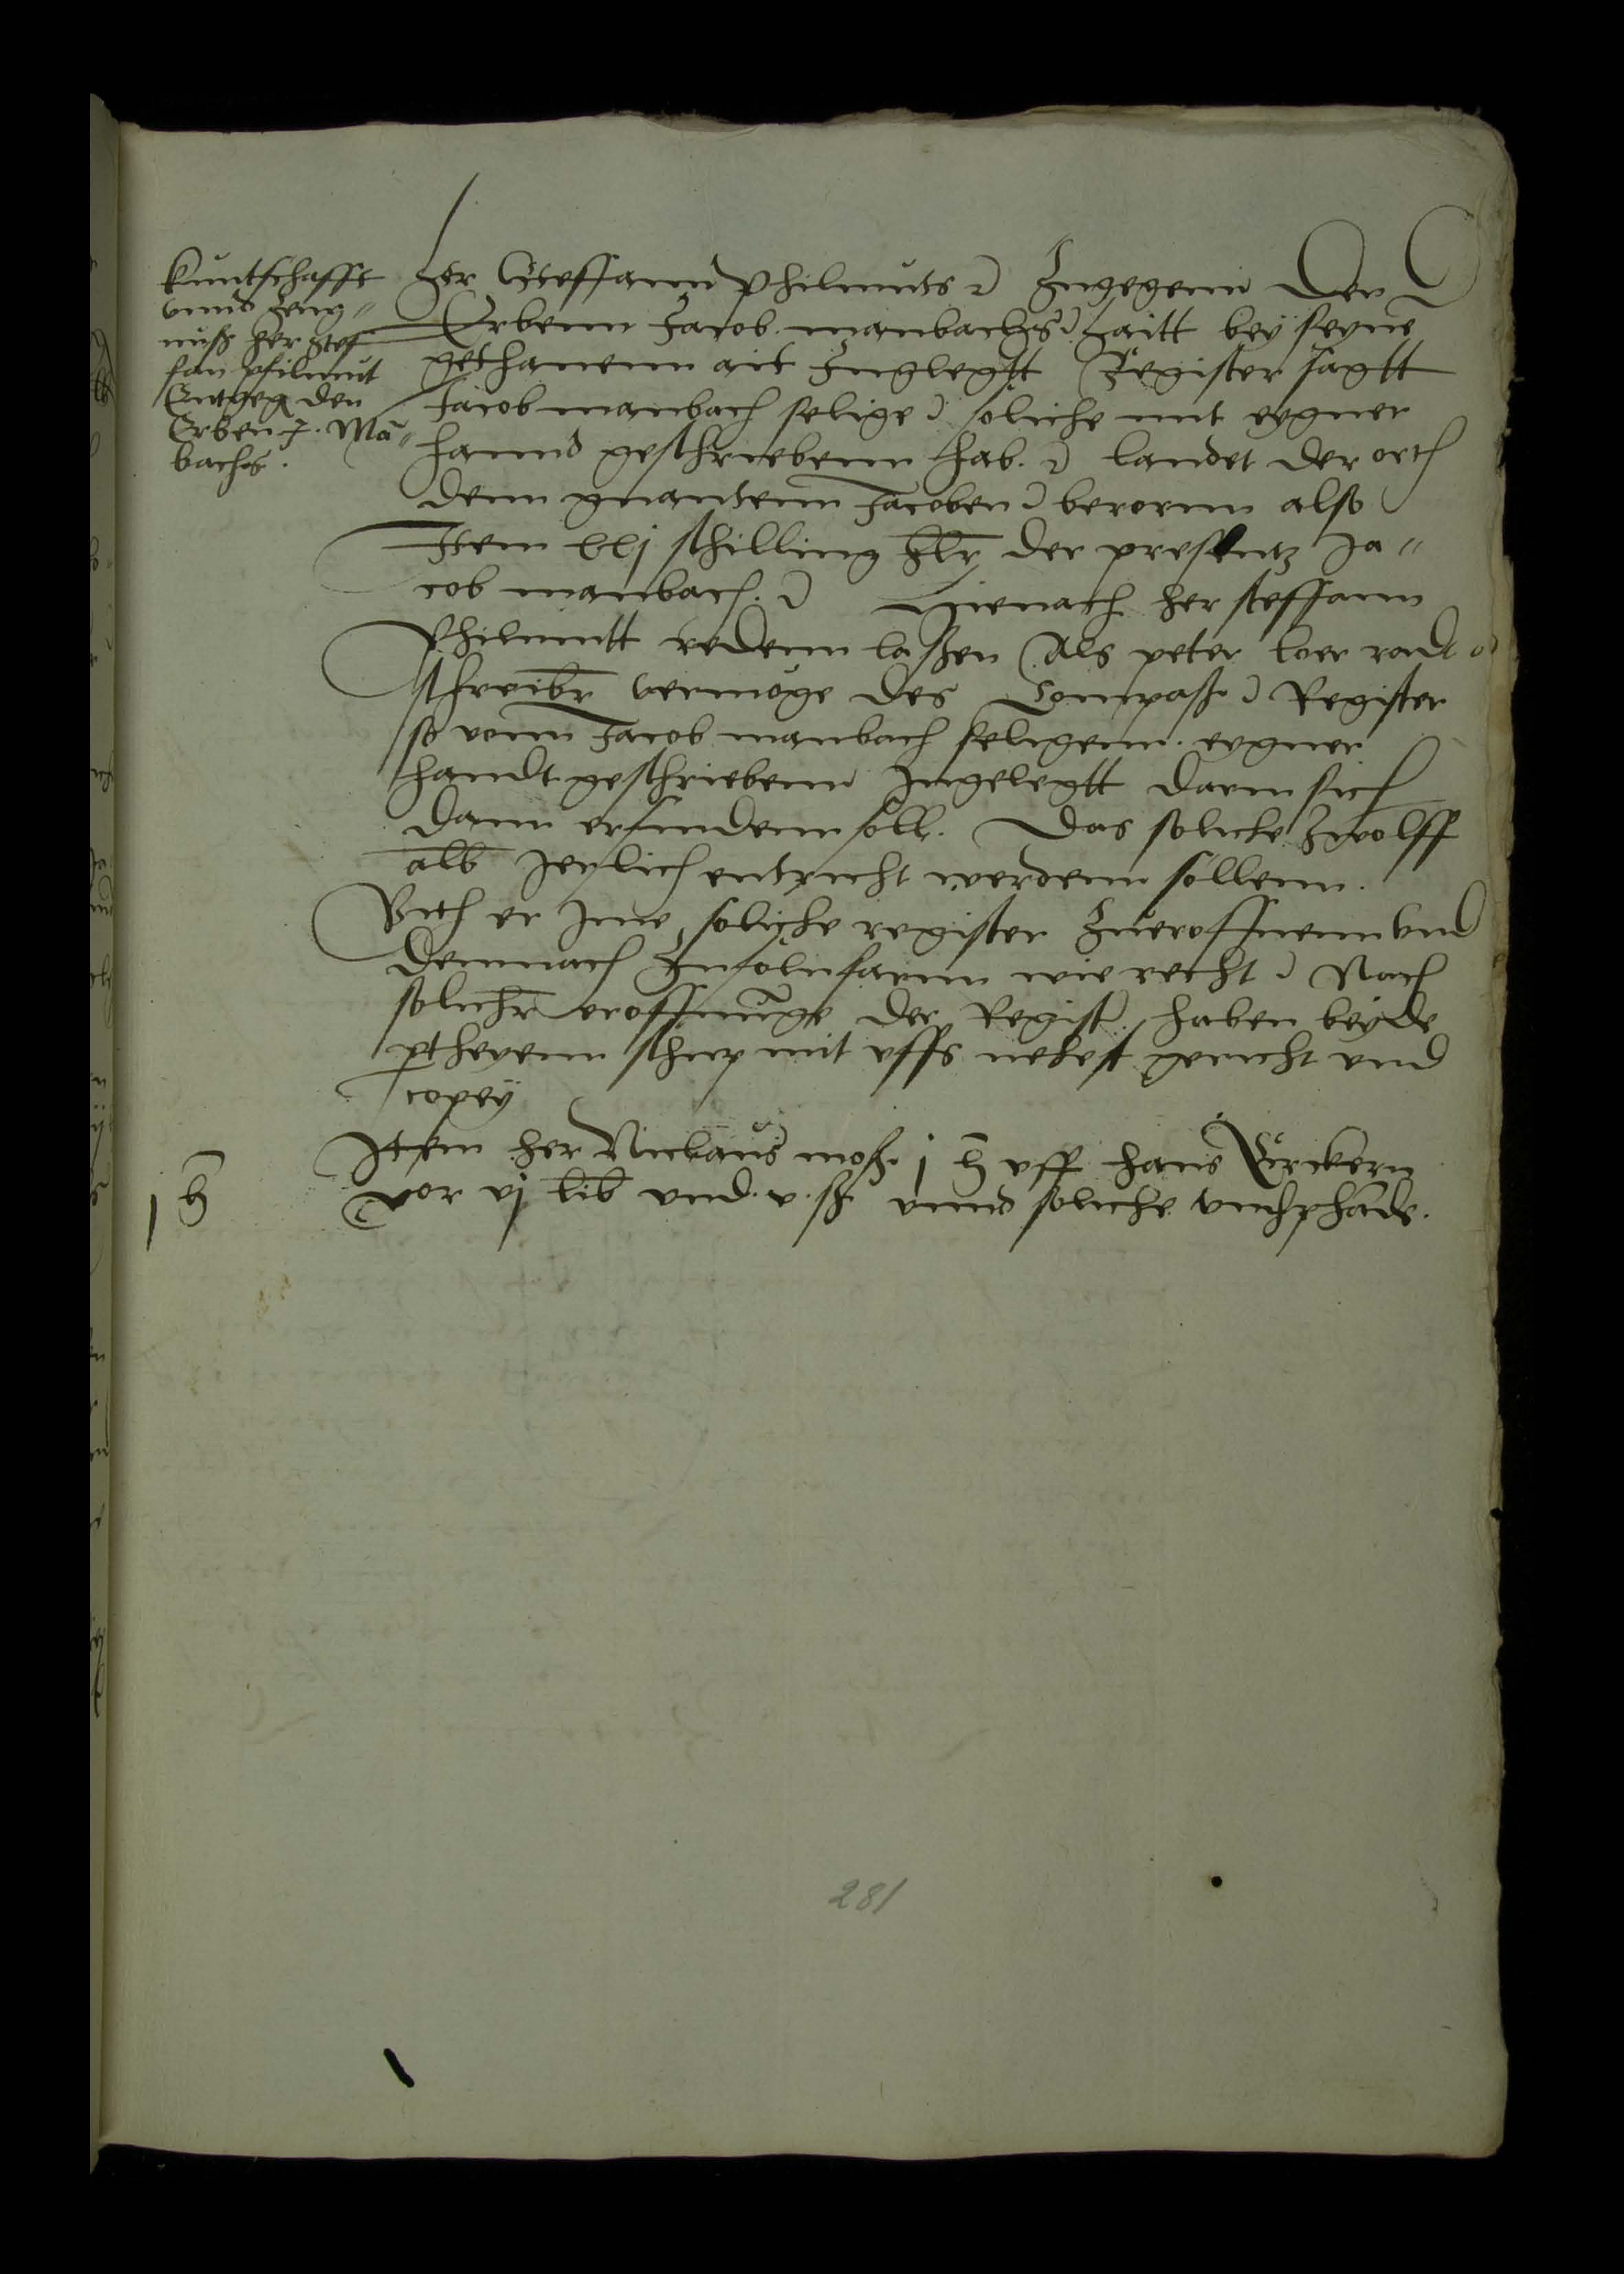 kuntschafft
vnnd Zeug-
nuß her Stef
fan philmut
Entgeg den
Erben J. Ma-
bachs.
her Steffann philmuts Ingegenn Den
Erbenn Jacob manbachs hatt bey seyne
gethanenn ait Inglegtt Register sagtt
Jacob manbach selige soliche mit eygner
hannd geschriebenn hab. laudet der orth
denn gnantenn Jacoben beroren also
Item xxj schilling hlr der presentz Ja-
cob manbach. Hienach her steffann
Philmutt redenn laßen Als peter loer radt
schreibr vermoge des Compaß Register
so vonn Jacob manbach seligenn eygner
handt geschriebenn Ingelegtt darin sich
dann erfindenn soll. Das soliche Zwolff
alb Jerlich entricht werdenn sollenn.
Bith er Ime soliche register Zueroffnenn vnd
demnach wie recht Nach
solichr eroffnunge der Regist haben beyde
ptheyenn schup mit vffs nehest gericht vnd
copey
Item her Niclaus j h vff hans
vor vj lib vnd v ß vnnd soliche
j h
281